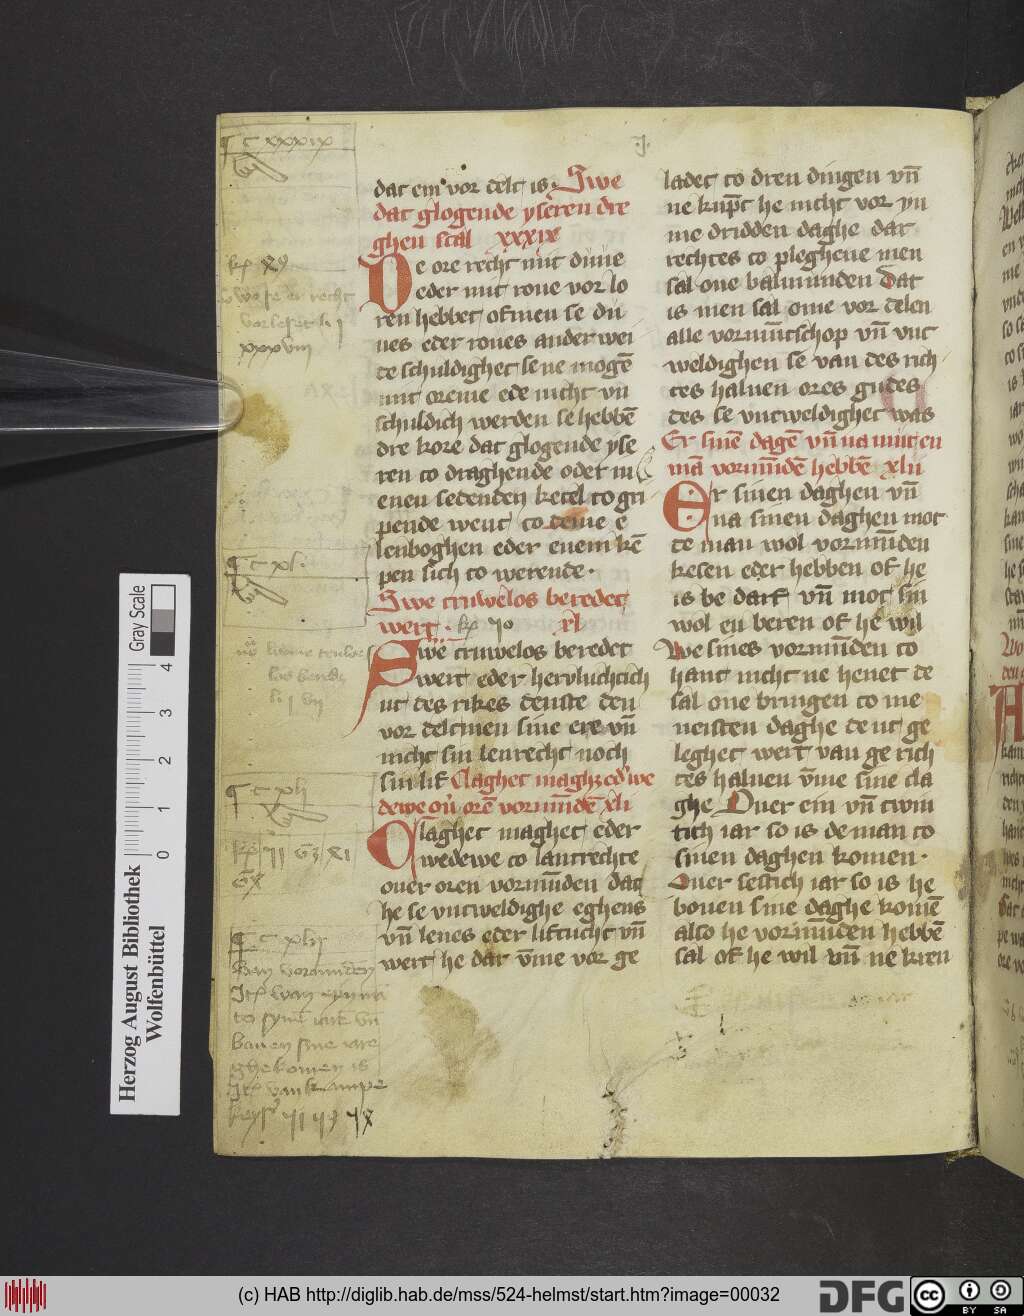 .J.
dat em vor delt is. Swe
dat glogende yseren dre
ghen scal xxxix
De ore recht mit duue
eder mit roue vor lo
ren hebbet of men se du
ues eder roues anderwei
de schuldighet se ne mogē
mit oreme ede nicht vn
schuldich werden se hebbē
dre kore dat glogende yse
ren to draghende oder in
enen sedenden ketel to gri
pende went to deme e
lenboghen eder enem kē
pen sich to werende.
Swe truwelos beredet
wert. xl
Swe truwelos beredet
wert eder hervluchtich
ut des rikes denste den
vor delt men sine ere vñ
nicht sin lenrecht noch
sin lif Claghet maghet ed' we
dewe ouer orē vormūdē xli
Claghet maghet eder
wedewe to lantrechte
ouer oren vormūden dat
he se vntweldighe eghens
vñ lenes eder liftucht vñ
wert he dar vme vor ge
ladet to dren dingen vñ
ne kūpt he nicht vor yn
me dridden daghe dar
rechtes to pleghene men
sal one balmunden Dat
is men sal ome vor delen
alle vormūtschop vñ vnt
weldighen se van des rich
tes haluen ores gudes
des se vntweldighet was
Er sinē dagē vñ na mut en
mā vormūdē hebbē xlii
Er sinen daghen vñ
na sinen daghen mot
te man wol vormūden
kesen eder hebben of he
is be darf vñ mot sin
wol en beren of he wil
We sines vormūden to
hant nicht ne heuet de
sal one bringen to me
neisten daghe de ut ge
leghet wert van ge rich
tes haluen vme sine cla
ghe Ouer ein vñ twin
tich iar so is de man to
sinen daghen komen.
Ouer sestich iar so is he
bouen sine daghe komē
also he vormūden hebbē
sal of he wil vñ ne kten
¶ c xxxix
xxxviii
¶ c xl.
¶ c xli
¶ c xlii
van vormūden
bauen syne iare
ghekomen is
Gray Scale
0 1 2 3 4
Herzog August Bibliothek
Wolfenbüttel
(c) HAB http://diglib.hab.de/mss/524-helmst/start.htm?image=00032
DFG
cc
BY SA